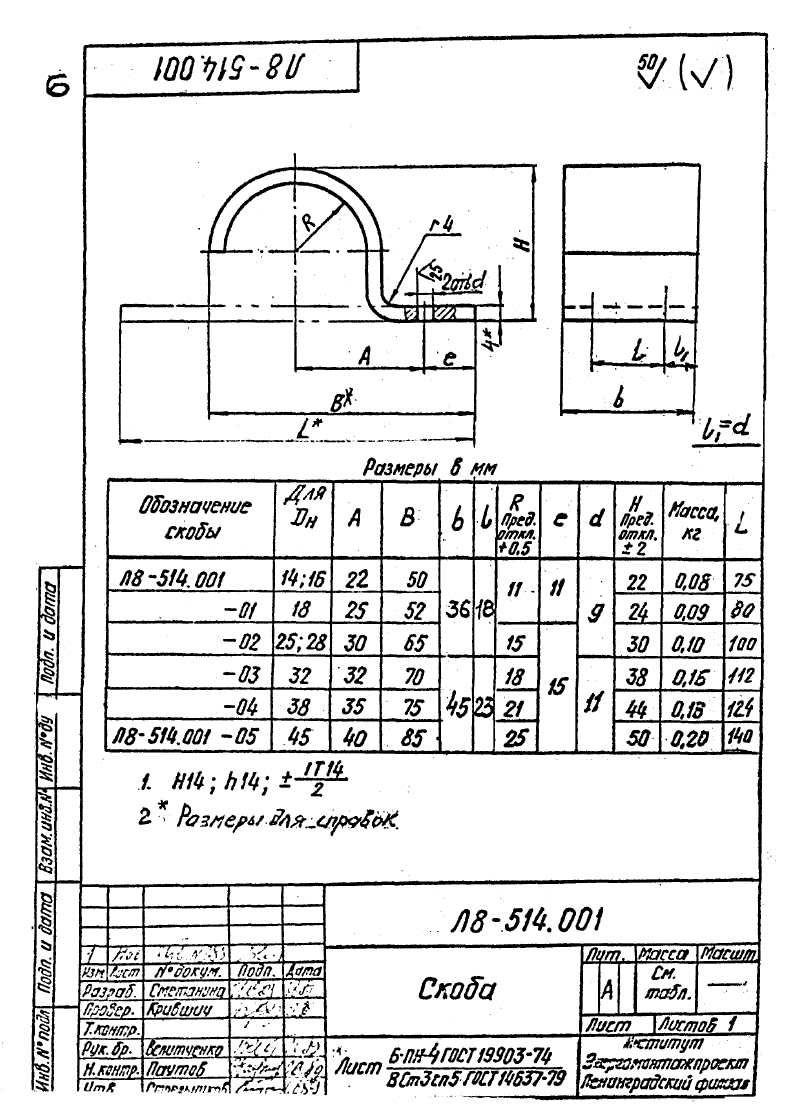 Л8-514.001
б
50 (√)
R
r4
25
2 отв. d
H
4*
A
e
B*
L*
l
l₁
b
l₁=d
Размеры в мм
Обозначение скобы Для Dн A B b l R Пред. откл. +0,5 e d H Пред. откл. ±2 Масса, кг L
Л8-514.001 14;16 22 50 36 18 11 11 9 22 0,08 75
-01 18 25 52 24 0,09 80
-02 25;28 30 65 15 15 30 0,10 100
-03 32 32 70 45 23 18 11 38 0,16 112
-04 38 35 75 21 44 0,18 124
Л8-514.001 -05 45 40 85 25 50 0,20 140
1. H14; h14; ± IT14/2
2* Размеры для справок.
Подп. и дата
Инв. № ду
Взам. инв. №
Подп. и дата
Инв. № подл
Л8-514.001
Изм Лист № докум. Подп. Дата
Разраб. Сметанина
Провер. Крившич
Т.контр.
Рук. бр. Венитченко
Н.контр. Паутов
Утв.
Скоба
Лит. Масса Масшт
А См. табл. —
Лист Листов 1
Лист 6-ПН-4 ГОСТ 19903-74
ВСт3сп5 ГОСТ 14637-79
Институт
Энергомонтажпроект
Ленинградский филиал